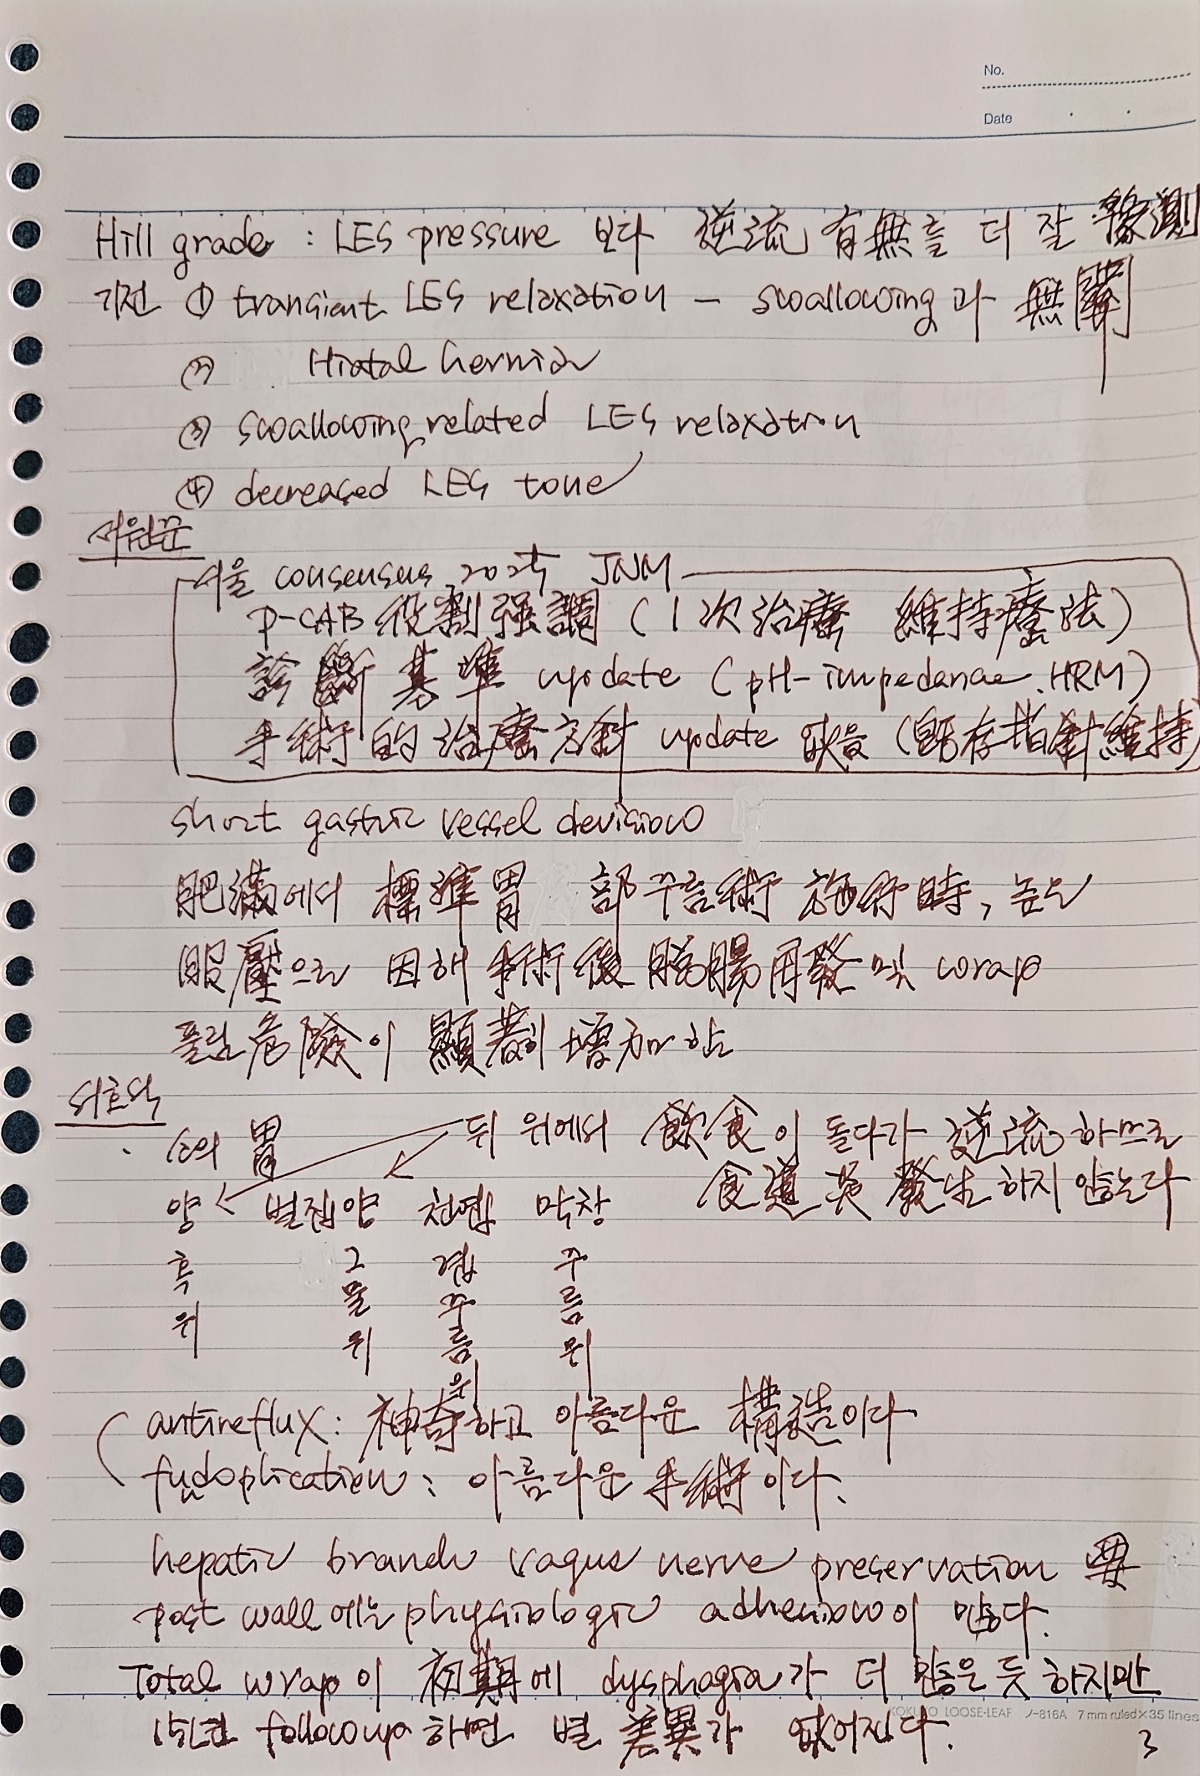 No.
Date
Hill grade : LES pressure 보다 逆流 有無를 더 잘 豫測
기전 ① transient LES relaxation - swallowing 과 無關
② Hiatal hernia
③ swallowing related LES relaxation
④ decreased LES tone
서울 consensus 2025 JNM
P-CAB 役割 强調 (1次治療 維持療法)
診斷 基準 update (pH-impedance, HRM)
手術的 治療方針 update 없음 (旣存指針維持)
short gastric vessel devision
肥滿에서 標準胃 部주름術 施行時, 높은
腹壓으로 因해 手術後 脫腸再發 및 wrap
풀림 危險이 顯著히 增加함
소의 胃 뒤 위에서 飮食이 돌다가 逆流하므로
食道炎 發生하지 않는다
양 벌집양 천엽 막창
혹위 그물위 겹주름위 주름위
antireflux : 神奇하고 아름다운 構造이다
fundoplication : 아름다운 手術이다.
hepatic branch vagus nerve preservation 要
post wall에는 physiologic adhesion이 많다.
Total wrap이 初期에 dysphagia가 더 많은 듯 하지만
15년 followup 하면 별 差異가 없어진다.
KOKUYO LOOSE-LEAF ノ-816A 7mm ruled×35 lines
3